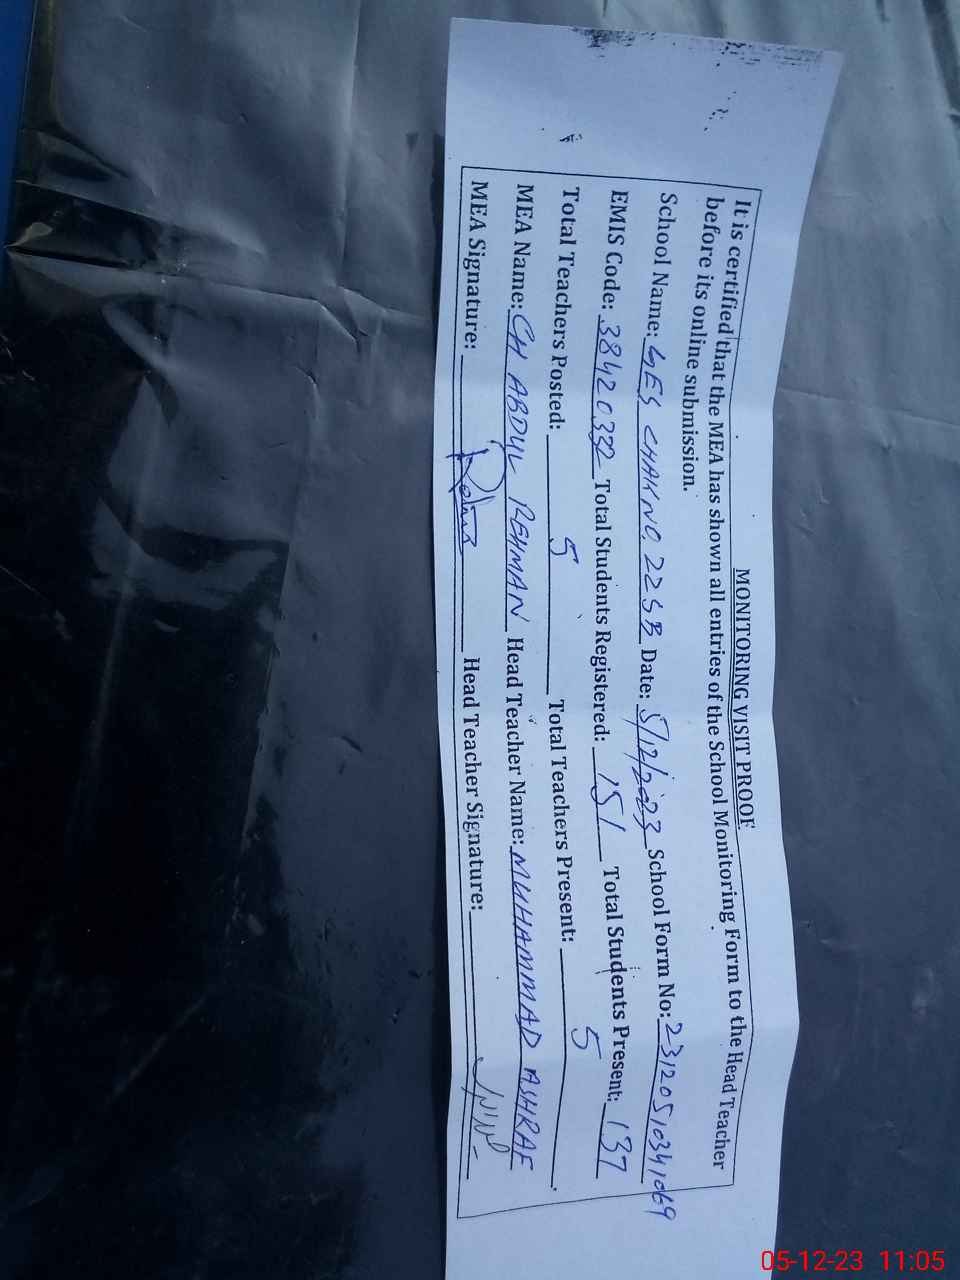 MONITORING VISIT PROOF
It is certified that the MEA has shown all entries of the School Monitoring Form to the Head Teacher
before its online submission.
School Name: GES CHAKNO. 22SB Date: 5/12/2023 School Form No: 23120510341069
EMIS Code: 38420332 Total Students Registered: 151 Total Students Present: 137
Total Teachers Posted: 5 Total Teachers Present: 5
MEA Name: CH ABDUL REHMAN Head Teacher Name: MUHAMMAD ASHRAF
MEA Signature: Head Teacher Signature:
05-12-23 11:05